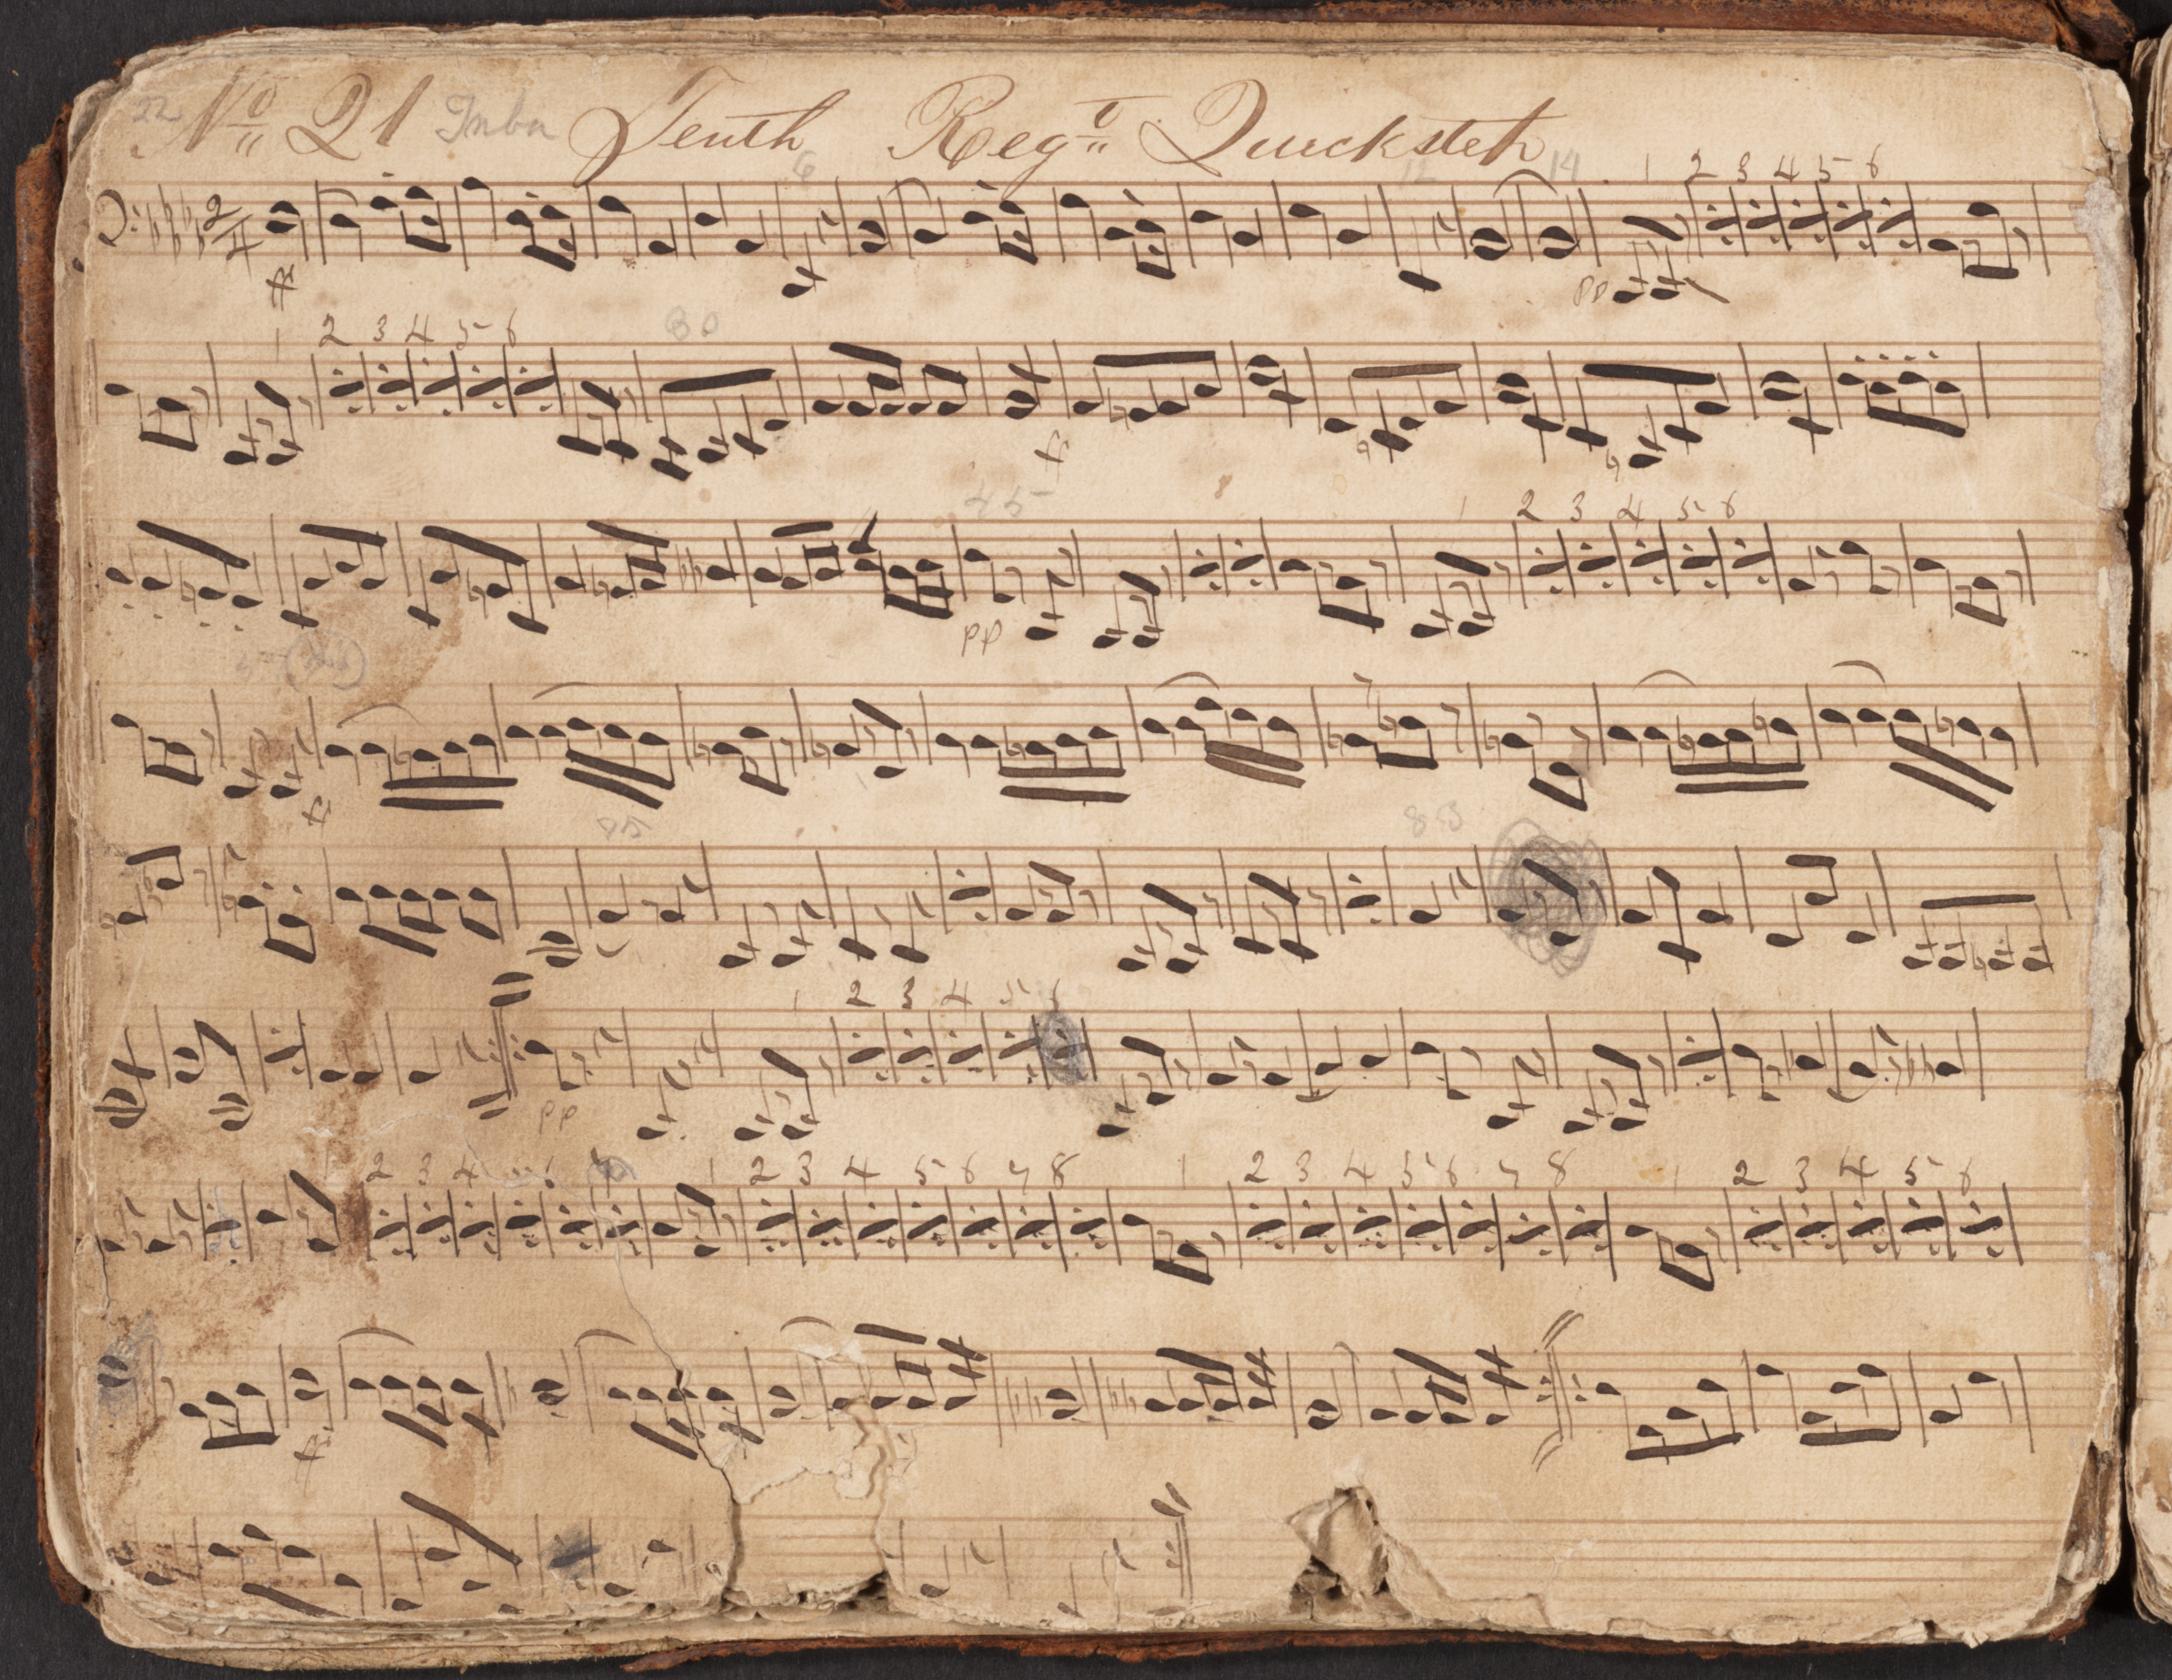 22 No 21 Tenth Regt Quicksteh
6 12 14 1 2 3 4 5 6
2 4
ff pp
1 2 3 4 5 6 30
ff
45 1 2 3 4 5 6
pp
ff
85
pp
1 2 3 4 5 6
pp
1 2 3 4 5 6 1 2 3 4 5 6 7 8 1 2 3 4 5 6 7 8 1 2 3 4 5 6
ff